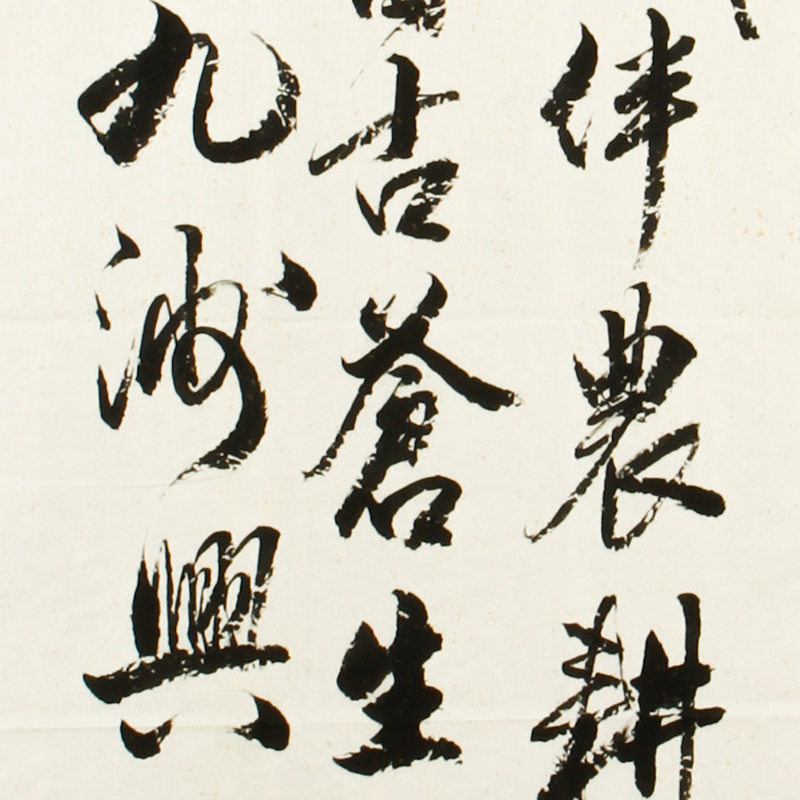 伴農耕
古蒼生
九洲興